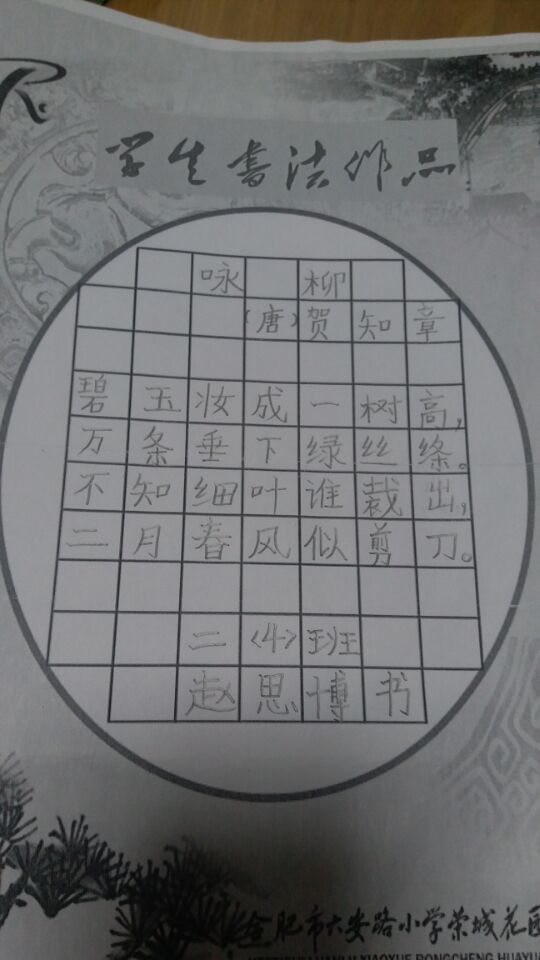 学生书法作品
咏柳
(唐)贺知章
碧玉妆成一树高,
万条垂下绿丝绦。
不知细叶谁裁出,
二月春风似剪刀。
二〈4〉班
赵思博书
合肥市六安路小学荣城花园